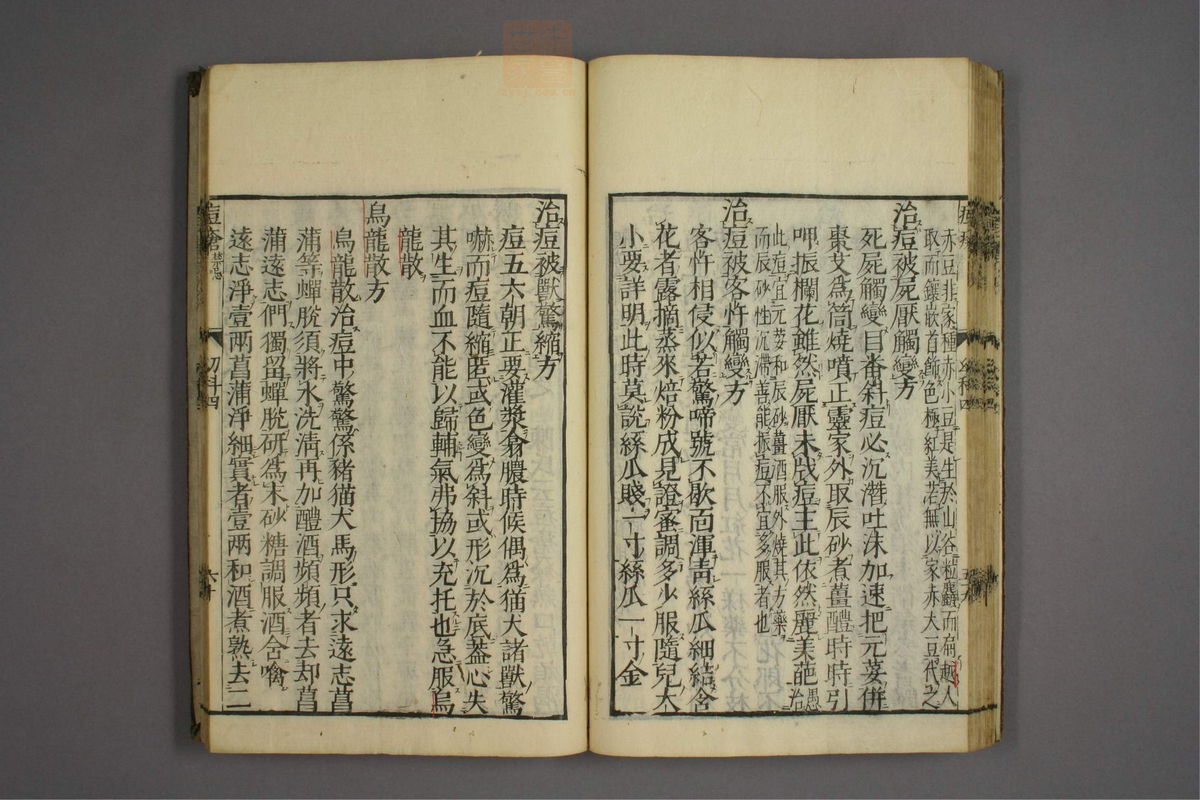 赤豆非家種赤小豆是生於山谷粒麤而扁越人
取而鑲嵌首飾色極紅美若無以家赤大豆代之
治痘被屍厭觸變方
死屍觸變目番斜痘必沉潛吐沫加速把元荽併
棗艾爲筒燒噴正靈家外取辰砂煮薑醴時時引
呷振欄花雖然屍厭未成痘主此依然麗美葩愚治
此痘宜元荽和辰砂薑酒服外燒其方藥
而辰砂性沉滯善能振痘不宜多服者也
治痘被客忤觸變方
客忤相侵似若驚啼號不歇面渾靑絲瓜細結含
花者露摘蒸來焙粉成見證蜜調多少服隨兒大
小要詳明此時莫說絲瓜賤一寸絲瓜一寸金
幼科四
治痘被獸驚縮方
痘五六朝正要灌漿翕膿時候偶爲猫犬諸獸驚
嚇而痘隨縮匿或色變爲斜或形沉於底葢心失
其生而血不能以歸輔氣弗協以充托也急服烏
龍散
烏龍散方
烏龍散治痘中驚驚係豬猫犬馬形只求遠志菖
蒲等蟬脫須將水洗淸再加醴酒頻頻者去却菖
蒲遠志們獨留蟬脫研爲末砂糖調服酒含噙
遠志淨壹兩菖蒲淨細實者壹兩和酒煮熟去二
痘瘡 幼科四 六十